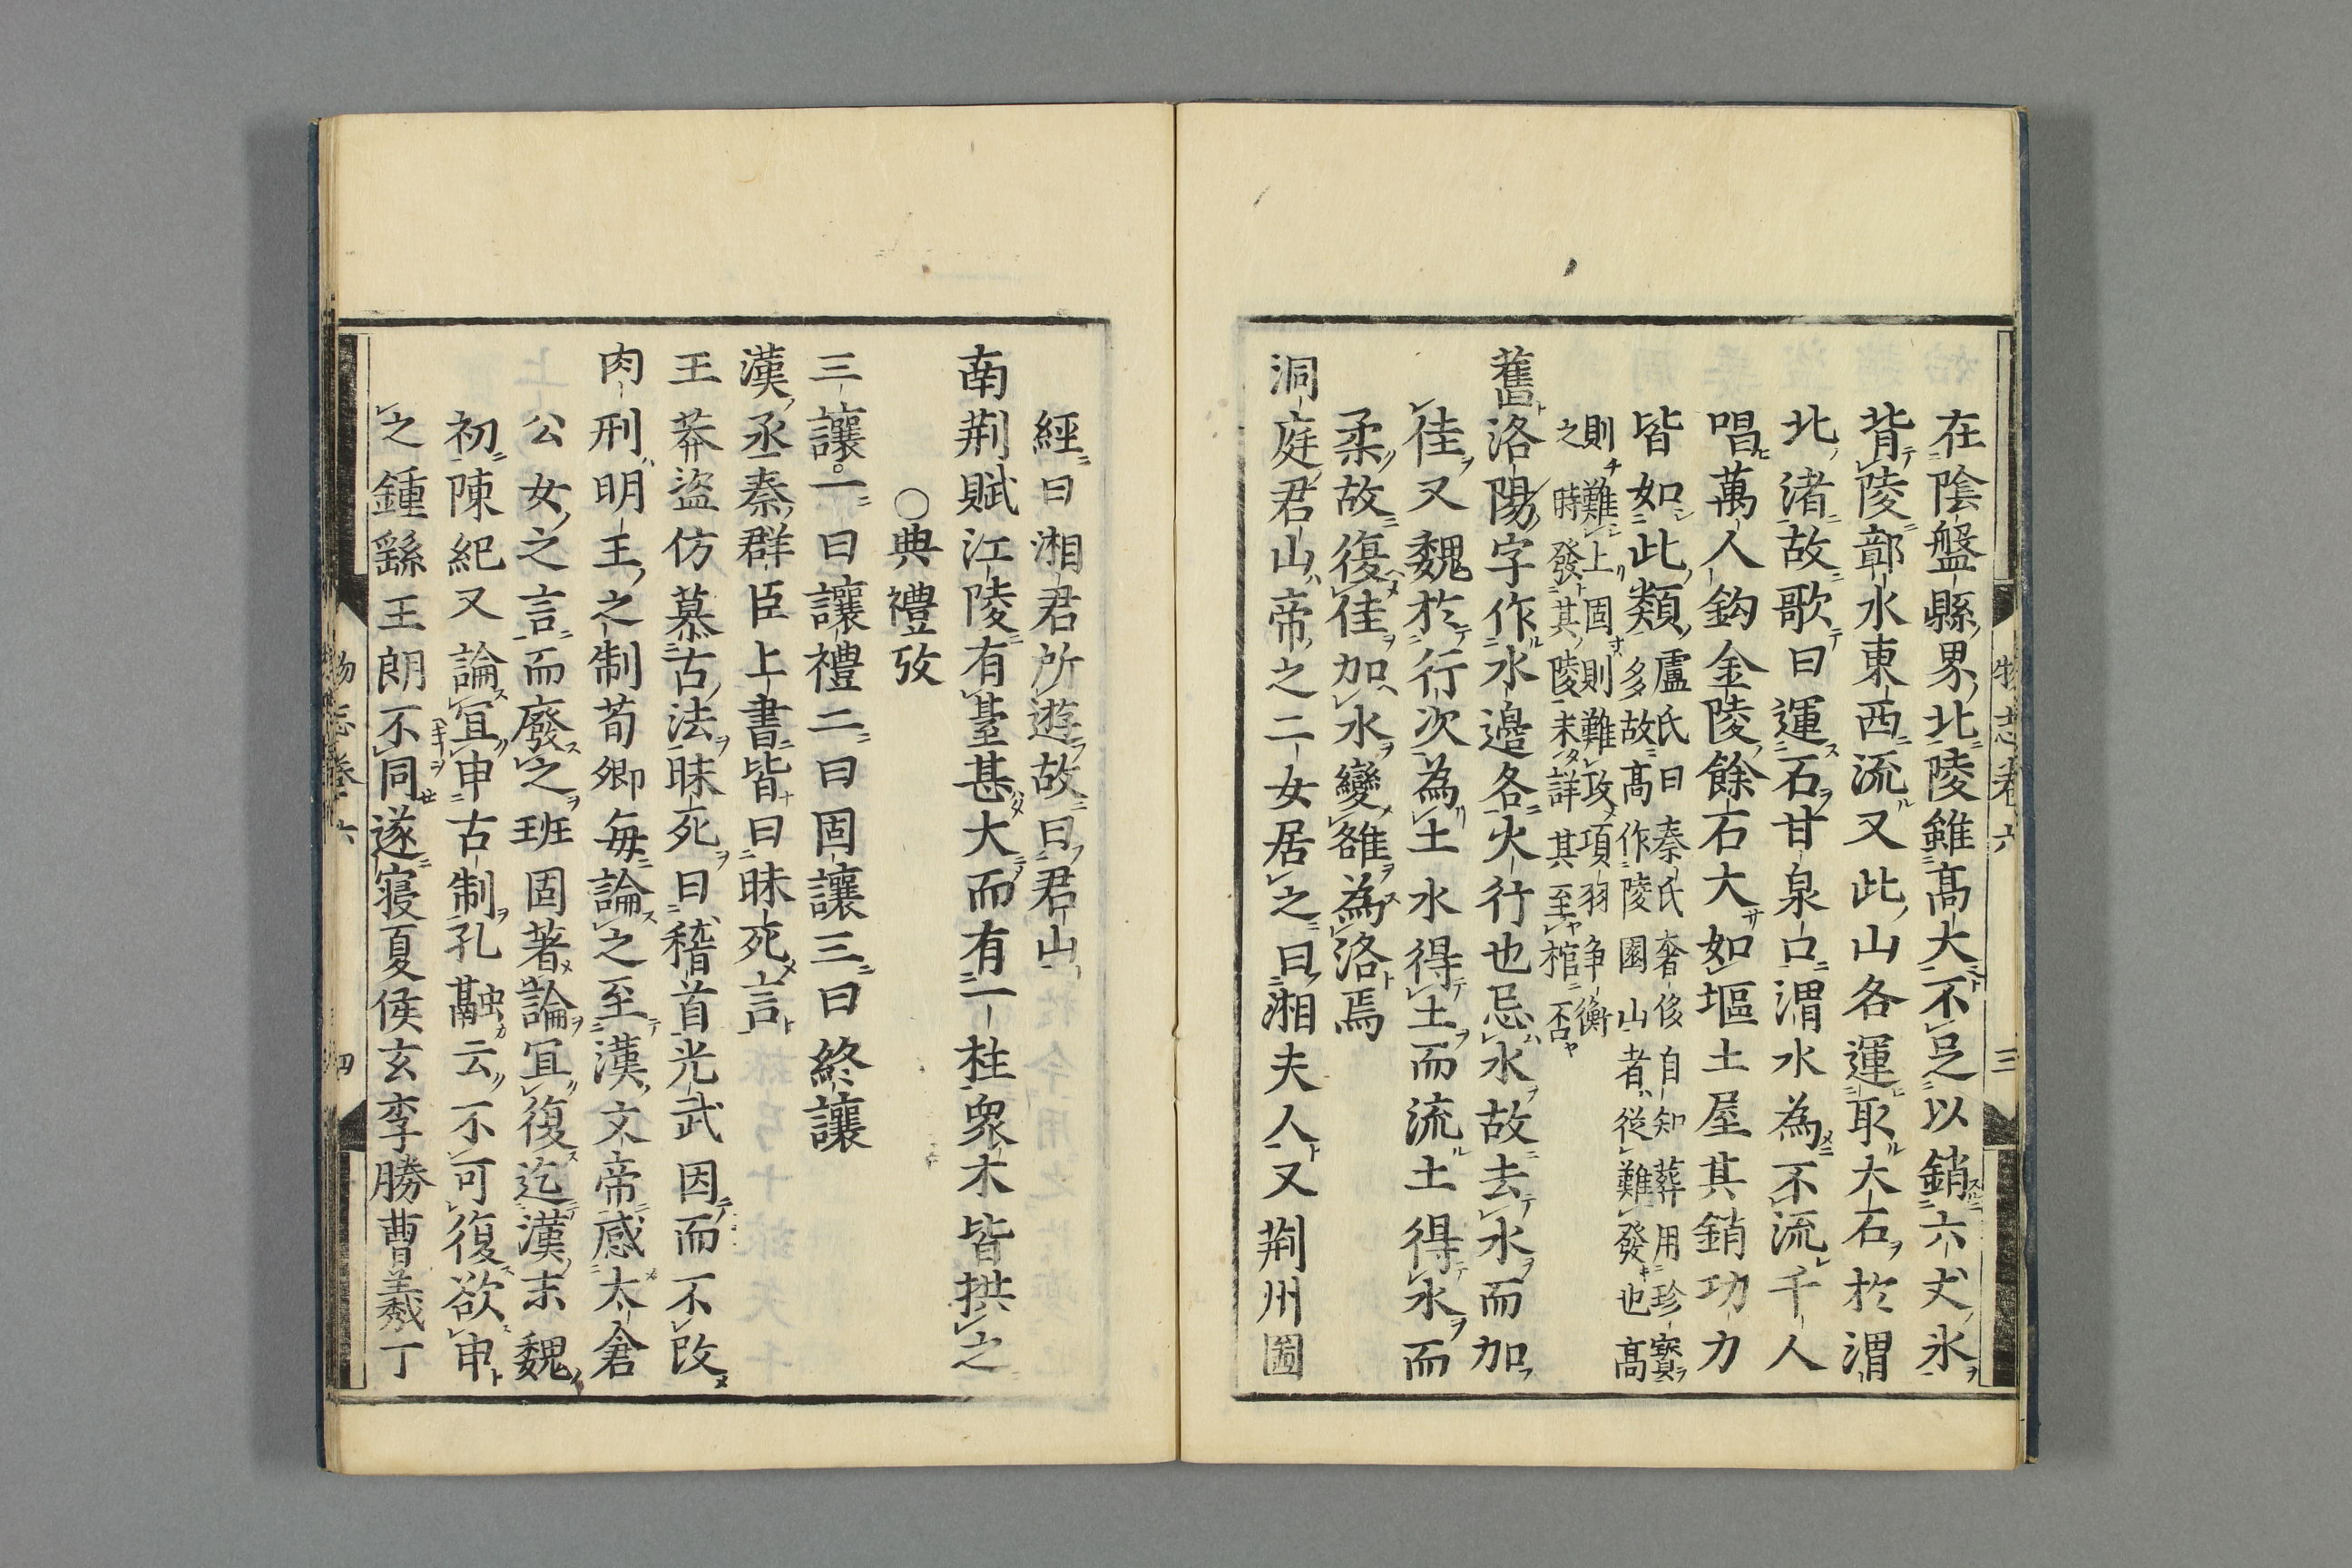 在陰盤縣界北陵雖髙大不足以銷六丈氷
背陵鄣水東西流又此山各運取大石於渭
北渚故歌曰運石甘泉口渭水為不流千人
唱萬人鈎金陵餘石大如塸土屋其銷功力
皆如此類盧氏曰秦氏奢侈自知葬用珍寳
多故髙作陵園山者從難發也髙
則難上固則難攻項羽争衡
之時發其陵未詳其至棺否
舊洛陽字作水邉各火行也忌水故去水而加
佳又魏於行次為土水得土而流土得水而
柔故復佳加水變雒為洛焉
洞庭君山帝之二女居之曰湘夫人又荆州圖
物志卷六
三
經曰湘君所遊故曰君山
南荆賦江陵有䑓甚大而有一柱衆木皆拱之
○典禮攷
三讓一曰讓禮二曰固讓三曰終讓
漢丞秦群臣上書皆曰昧死言
王莽盜仿慕古法昧死曰稽首光武因而不改
肉刑明王之制荀卿每論之至漢文帝感太倉
公女之言而廢之班固著論冝復迄漢末魏
初陳紀又論冝申古制孔融云不可復欲申
之鍾繇王朗不同遂寢夏侯玄李勝曹羲丁
物志卷六
四